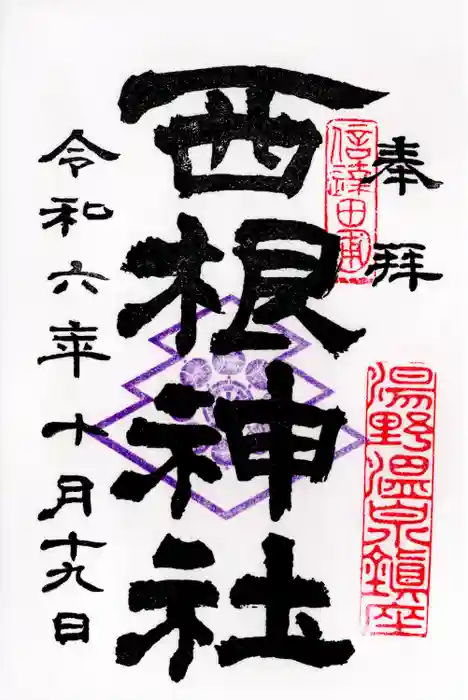 奉拝
湯野温泉鎮座
西根神社
令和六年十月十九日